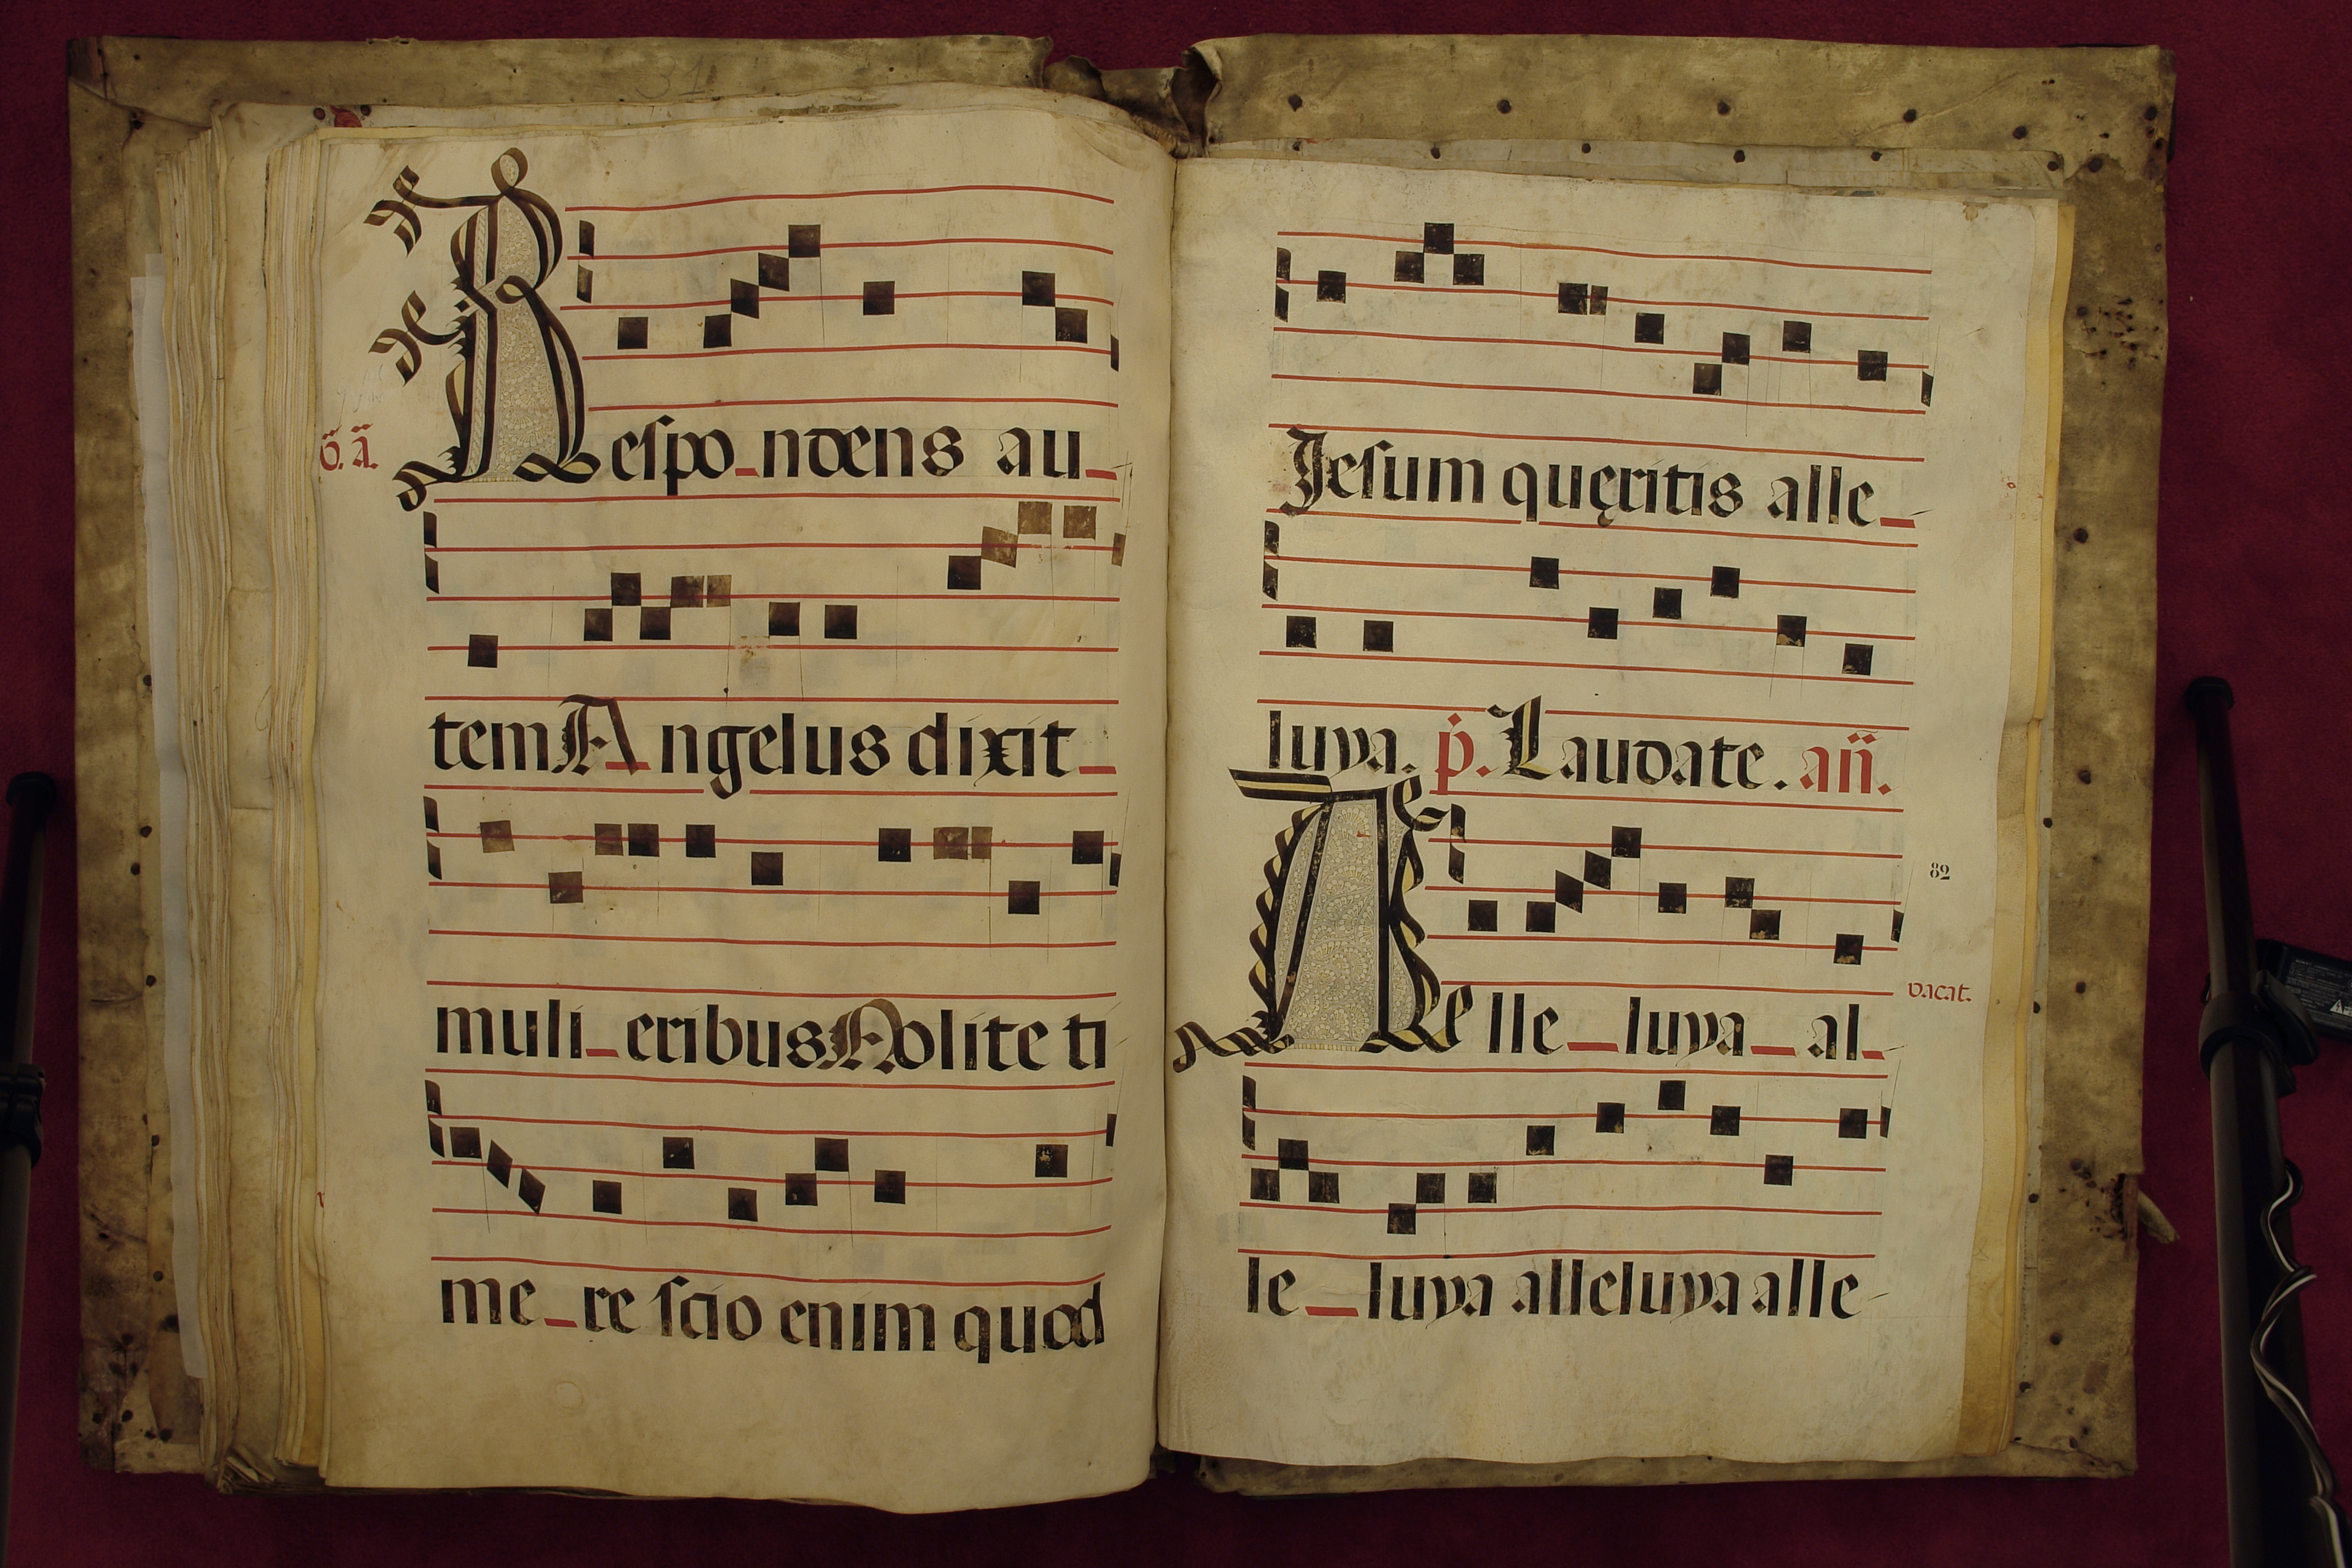 31
Respo_ndens au_
ö. ä.
tem Angelus dixit_
muli_eribus Nolite ti
me_re scio enim quod
Jesum quęritis alle_
luya. p. Laudate. añ.
82
vacat.
Alle_luya_al_
le_luya alleluya alle